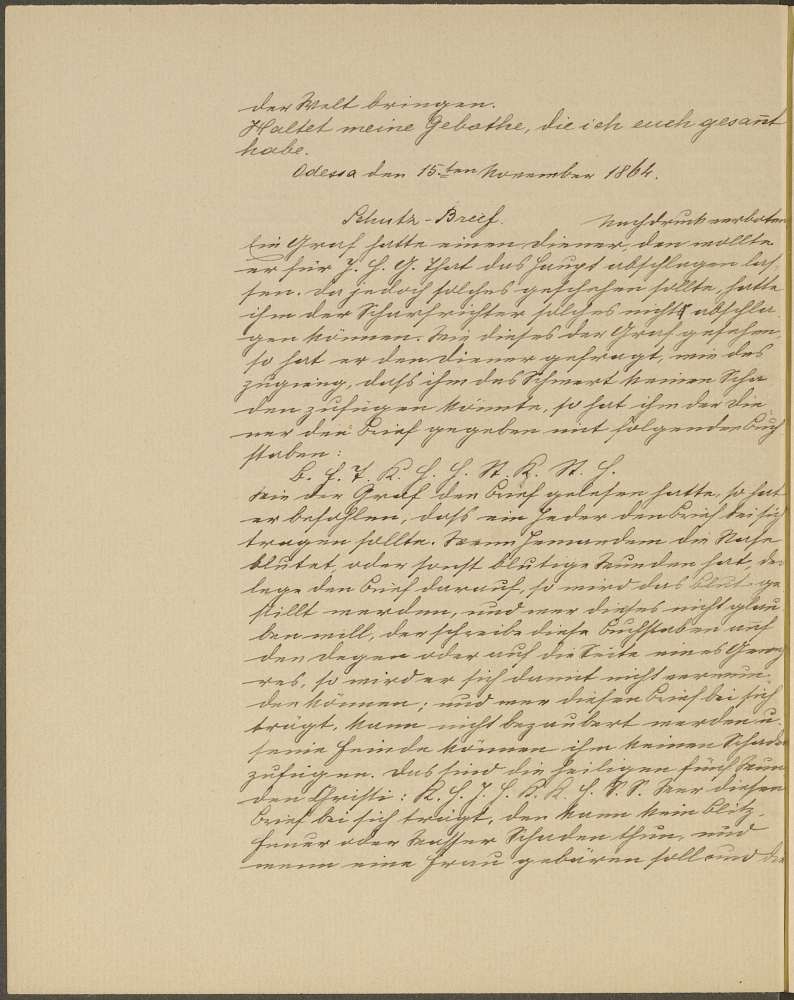 der Welt bringen.
Haltet meine Gebothe, die ich euch gesan̄t
habe.
Odessa den 15.ten November 1864.
Schutz-Brief. Nachdruck verboten
Ein Graf hatte einen Diener, den wollte
er für J. H. G. That das Haupt abschlagen las-
sen. Da jedoch solches geschehen sollte, hatte
ihm der Scharfrichter solches nicht abschla-
gen können. Wie dieses der Graf gesehen,
so hat er den Diener gefragt, wie das
zugieng, daß ihm das Schwert keinen Scha
den zufügen könnte, so hat ihm der Die
ner den Brief gegeben mit folgenden Buch
staben:
B. J. T. K. H. H. St. K. St. H.
Wie der Graf den Brief gelesen hatte, so hat
er befohlen, daß ein Jeder den Brief bei sich
tragen sollte. Wenn Jemandem die Nase
blutet, oder sonst blutige Wunden hat, der
lege den Brief darauf, so wird das Blut ge
stillt werden, und wer dieses nicht glau
ben will, der schreibe diese Buchstaben auf
den Degen oder auf die Seite eines Geweh
res, so wird er sich damit nicht verwun-
den können; und wer diesen Brief bei sich
trägt, kann nicht bezaubert werden u.
seine Feinde können ihm keinen Schaden
zufügen. Das sind die heiligen fünf Wun
den Christi: K. H. J. H. K. K. H. Wer diesen
Brief bei sich trägt, den kann kein Blitz,
Feuer oder Wasser Schaden thun, und
wenn eine Frau gebären soll und die